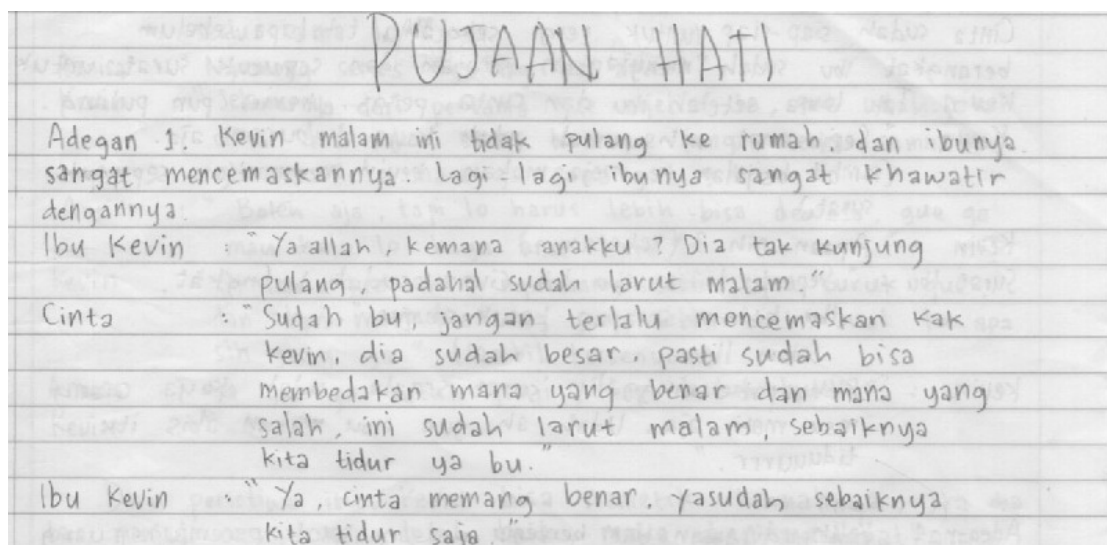 PUJAAN HATI
Adegan 1 : Kevin malam ini tidak pulang ke rumah dan ibunya
sangat mencemaskannya. Lagi-lagi ibunya sangat khawatir
dengannya.
Ibu Kevin : "Yaallah, kemana anakku? Dia tak kunjung
pulang, padahal sudah larut malam"
Cinta : "Sudah bu, jangan terlalu mencemaskan kak
kevin, dia sudah besar. pasti sudah bisa
membedakan mana yang benar dan mana yang
salah. ini sudah larut malam, sebaiknya
kita tidur ya bu."
Ibu Kevin : "Ya, cinta memang benar. yasudah sebaiknya
kita tidur saja."